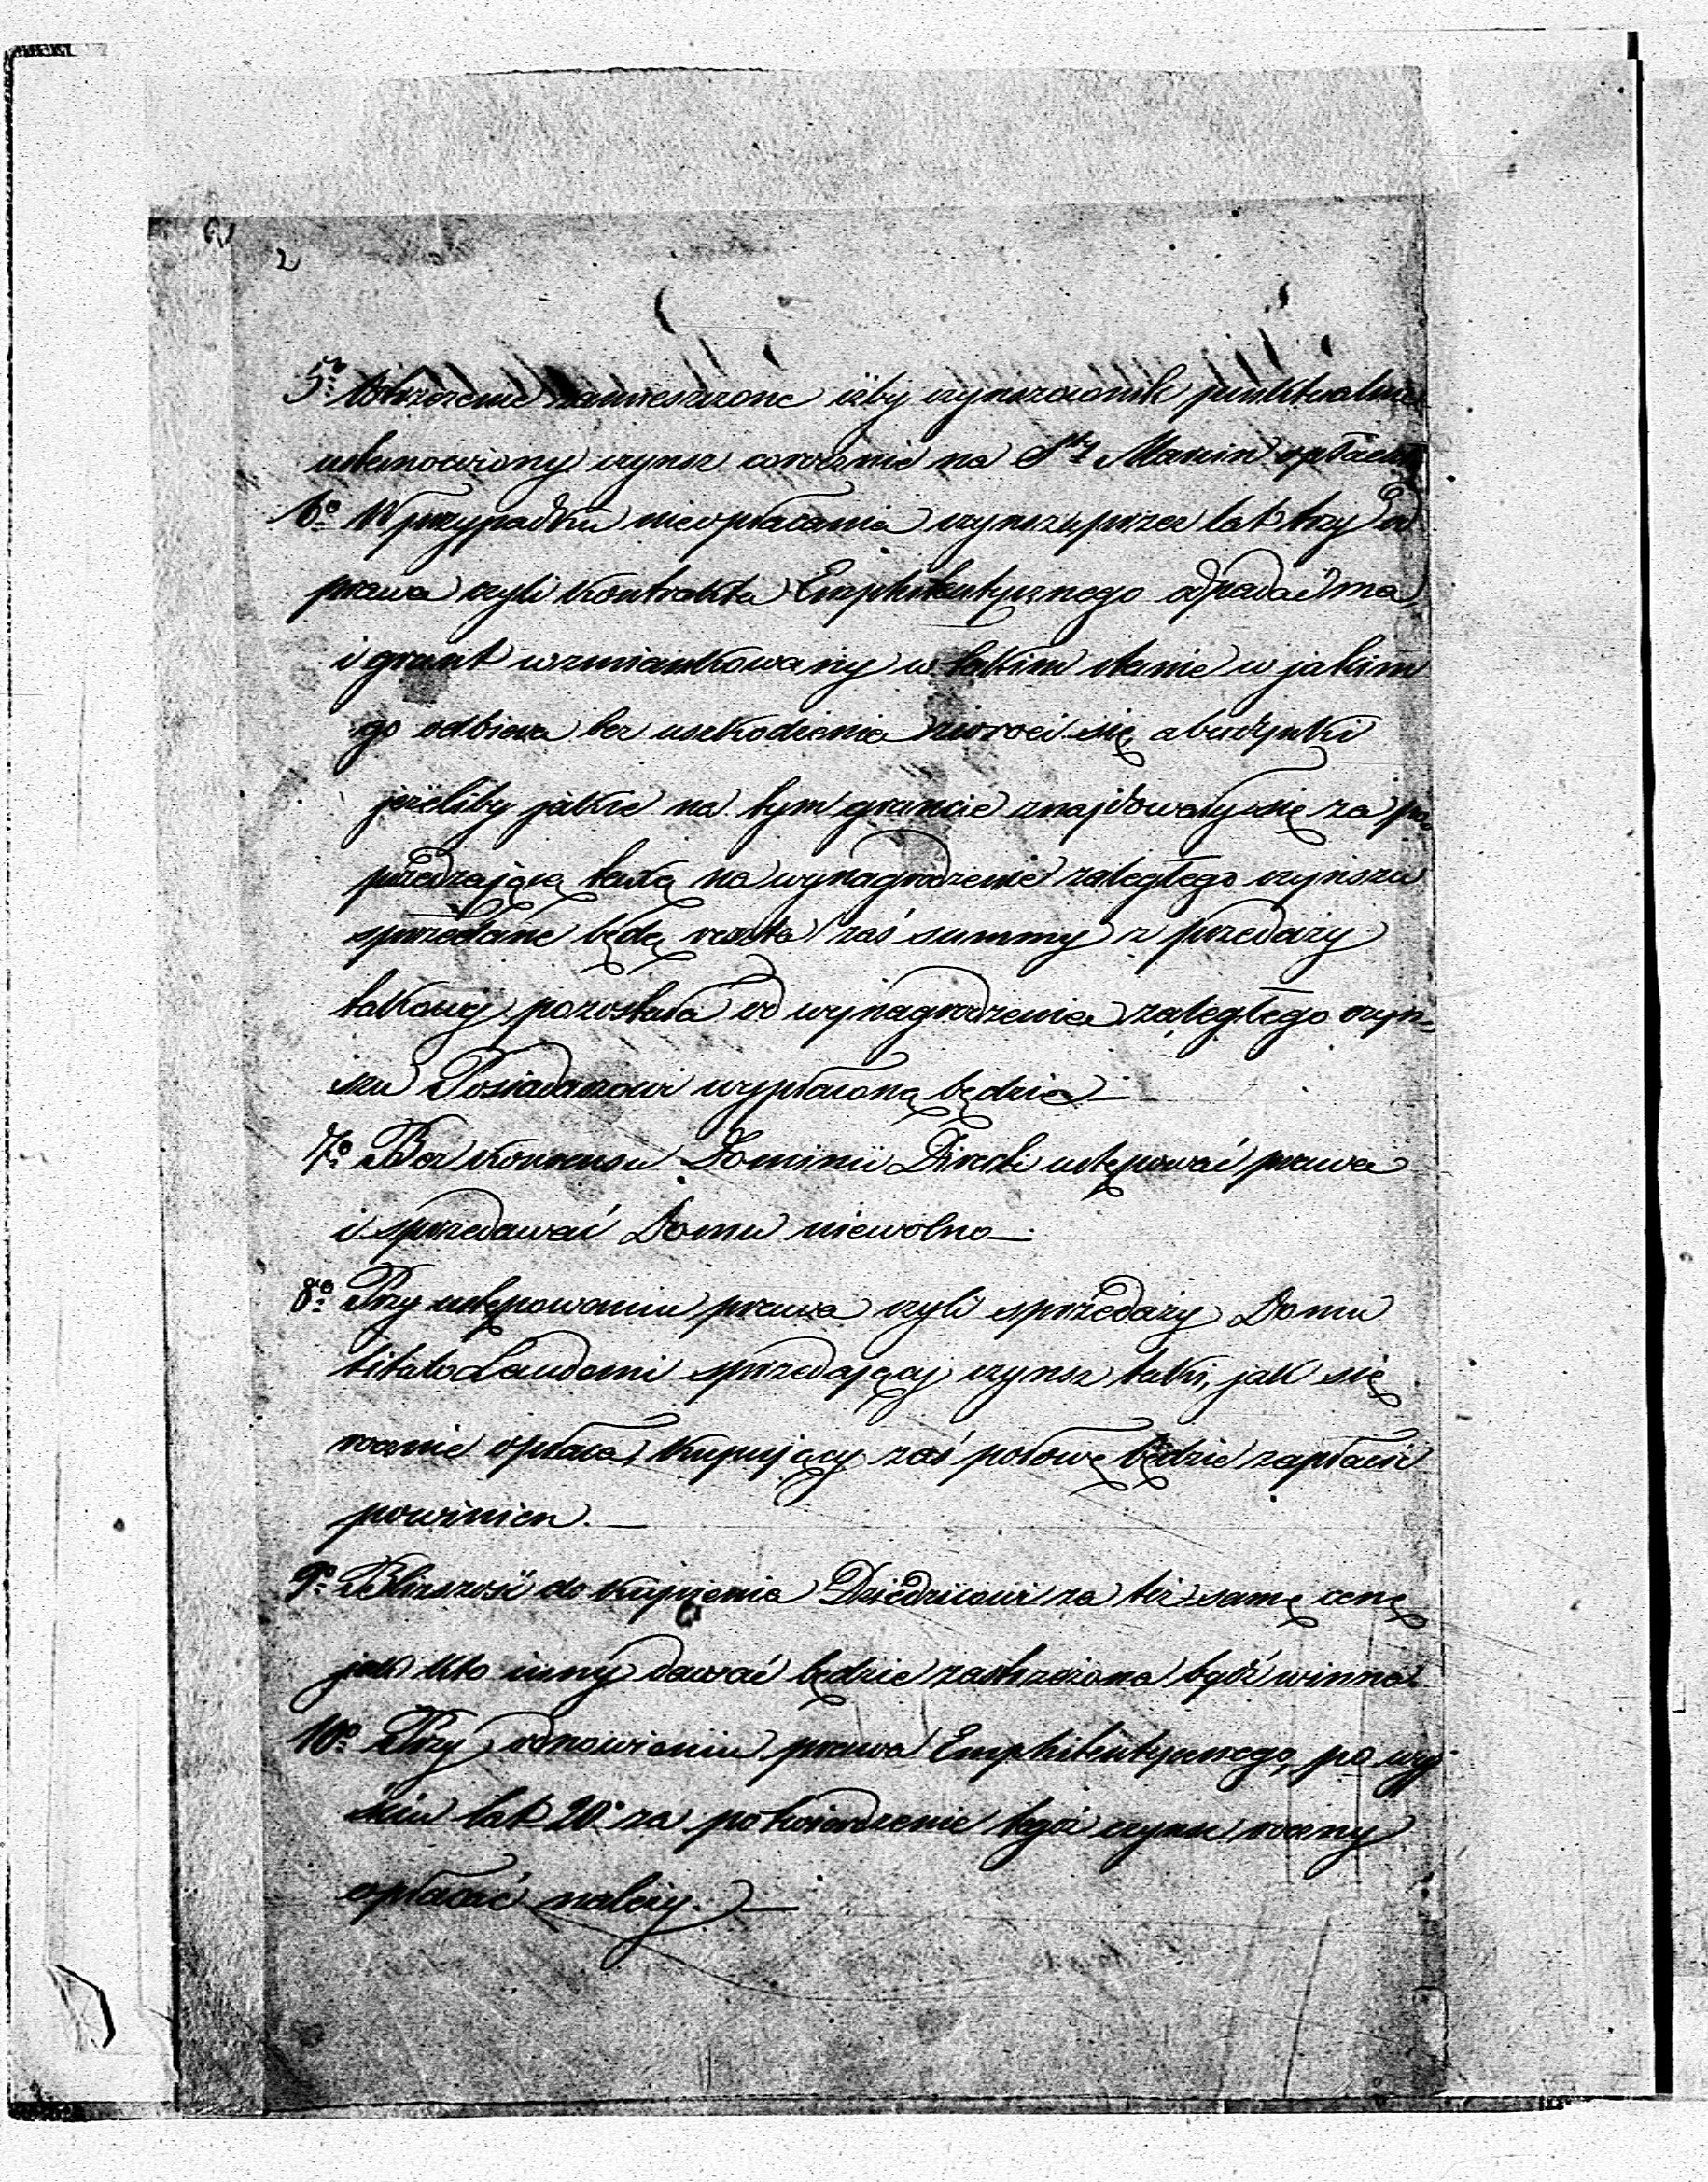 2
5º Ostrzeżenie zamieszczone iżby czynszownik punktualnie
ustanowiony czynsz corocznie na Sty Marcin opłacał
6º W przypadku nieopłacania czynszu przez lat trzy od
prawa czyli kontraktu Emphiteutycznego odpadać ma,
i grunt wzmiankowany w takim stanie w jakim
go odbiera bez uszkodzenia zwróci się, a budynki
jeżeliby jakie na tym gruncie znajdowały się za po
przedzającą taxą na wynagrodzenie zaległego czynszu
sprzedane będą reszta zaś summy z przedaży
takowej pozostała od wynagrodzenia zaległego czyn=
szu Posiadaczowi wypłaconą będzie —
7º Bez konsensu Dominii Directi ustępować prawa
i sprzedawać Domu niewolno —
8º Przy ustępowaniu prawa czyli sprzedaży Domu
titulo Laudemi sprzedający czynsz taki, jak się
rocznie opłaca, kupujący zaś połowę będzie zapłacić
powinien. —
9º Bliższość do kupienia Dziedzicowi za też samę cenę
jak kto inny dawać będzie zastrzeżona bydź winna
10º Przy odnowieniu prawa Emphiteutycznego, po wyj
ściu lat 20 za potwierdzenie tegoż czynsz roczny
opłacać należy. —